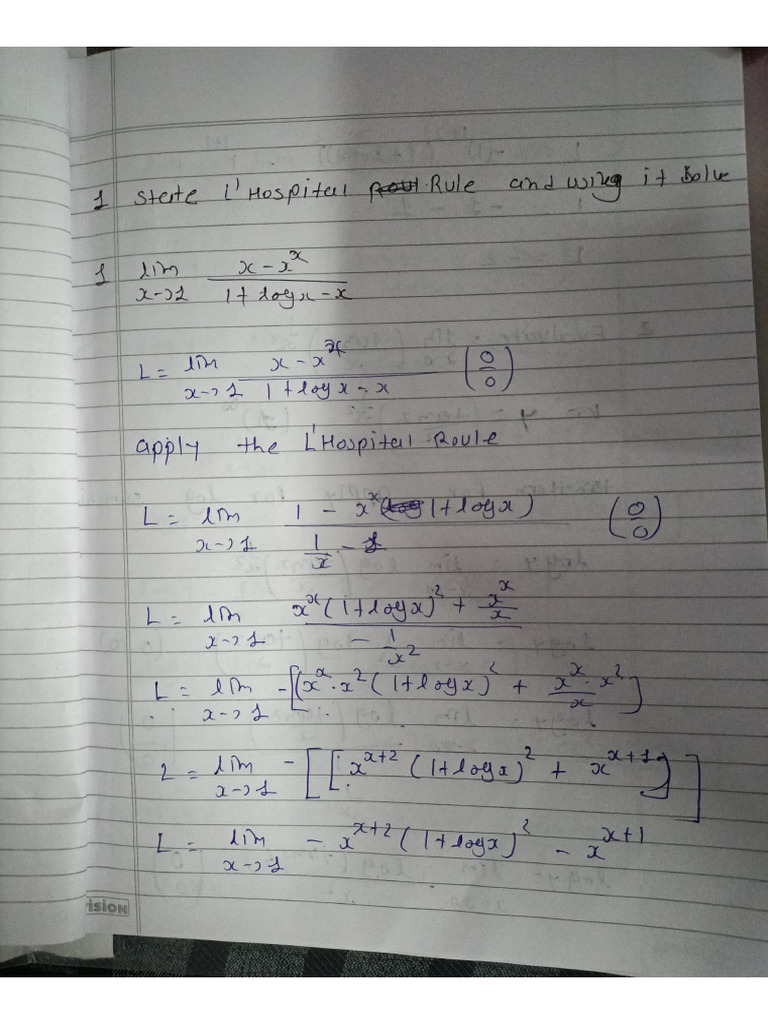 1 State L'Hospital Rule and using it Solve
1 lim x→1 (x - x^x) / (1 + log x - x)
L = lim x→1 (x - x^x) / (1 + log x - x) (0/0)
apply the L'Hospital Roule
L = lim x→1 (1 - x^x (1 + log x)) / (1/x - 1) (0/0)
L = lim x→1 (x^x (1 + log x)^2 + x^x/x) / (- 1/x^2)
L = lim x→1 -[(x^x · x^2 (1 + log x)^2 + x^x/x · x^2]
L = lim x→1 -[[x^(x+2) (1 + log x)^2 + x^(x+1)]]
L = lim x→1 - x^(x+2) (1 + log x)^2 - x^(x+1)
ision